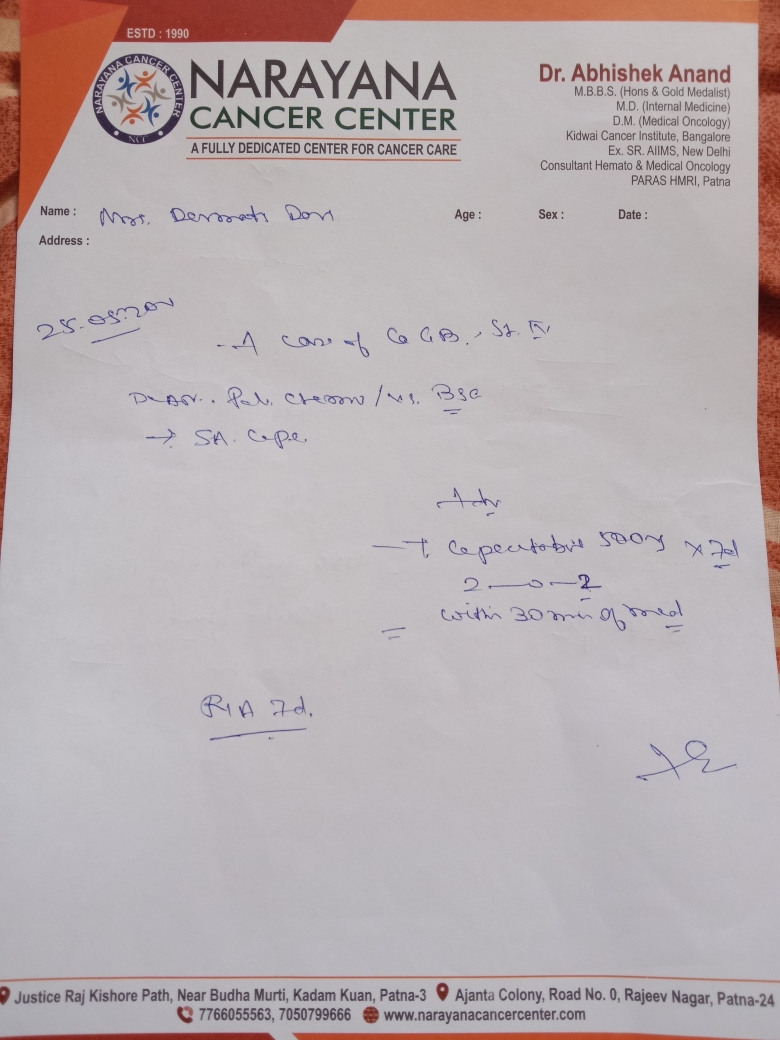 ESTD : 1990
NARAYANA CANCER CENTER
NCC
NARAYANA
CANCER CENTER
A FULLY DEDICATED CENTER FOR CANCER CARE
Dr. Abhishek Anand
M.B.B.S. (Hons & Gold Medalist)
M.D. (Internal Medicine)
D.M. (Medical Oncology)
Kidwai Cancer Institute, Bangalore
Ex. SR. AIIMS, New Delhi
Consultant Hemato & Medical Oncology
PARAS HMRI, Patna
Name : Mrs. Age : Sex : Date :
Address :
- A case of Ca GB, St. IV
Pal. chemo / vs. BSC
→ SA. Cape
Adv
- T. 500 x 7d
2 — 0 — 2
within 30 min of meal
R/A 7d.
Justice Raj Kishore Path, Near Budha Murti, Kadam Kuan, Patna-3 Ajanta Colony, Road No. 0, Rajeev Nagar, Patna-24
7766055563, 7050799666 www.narayanacancercenter.com